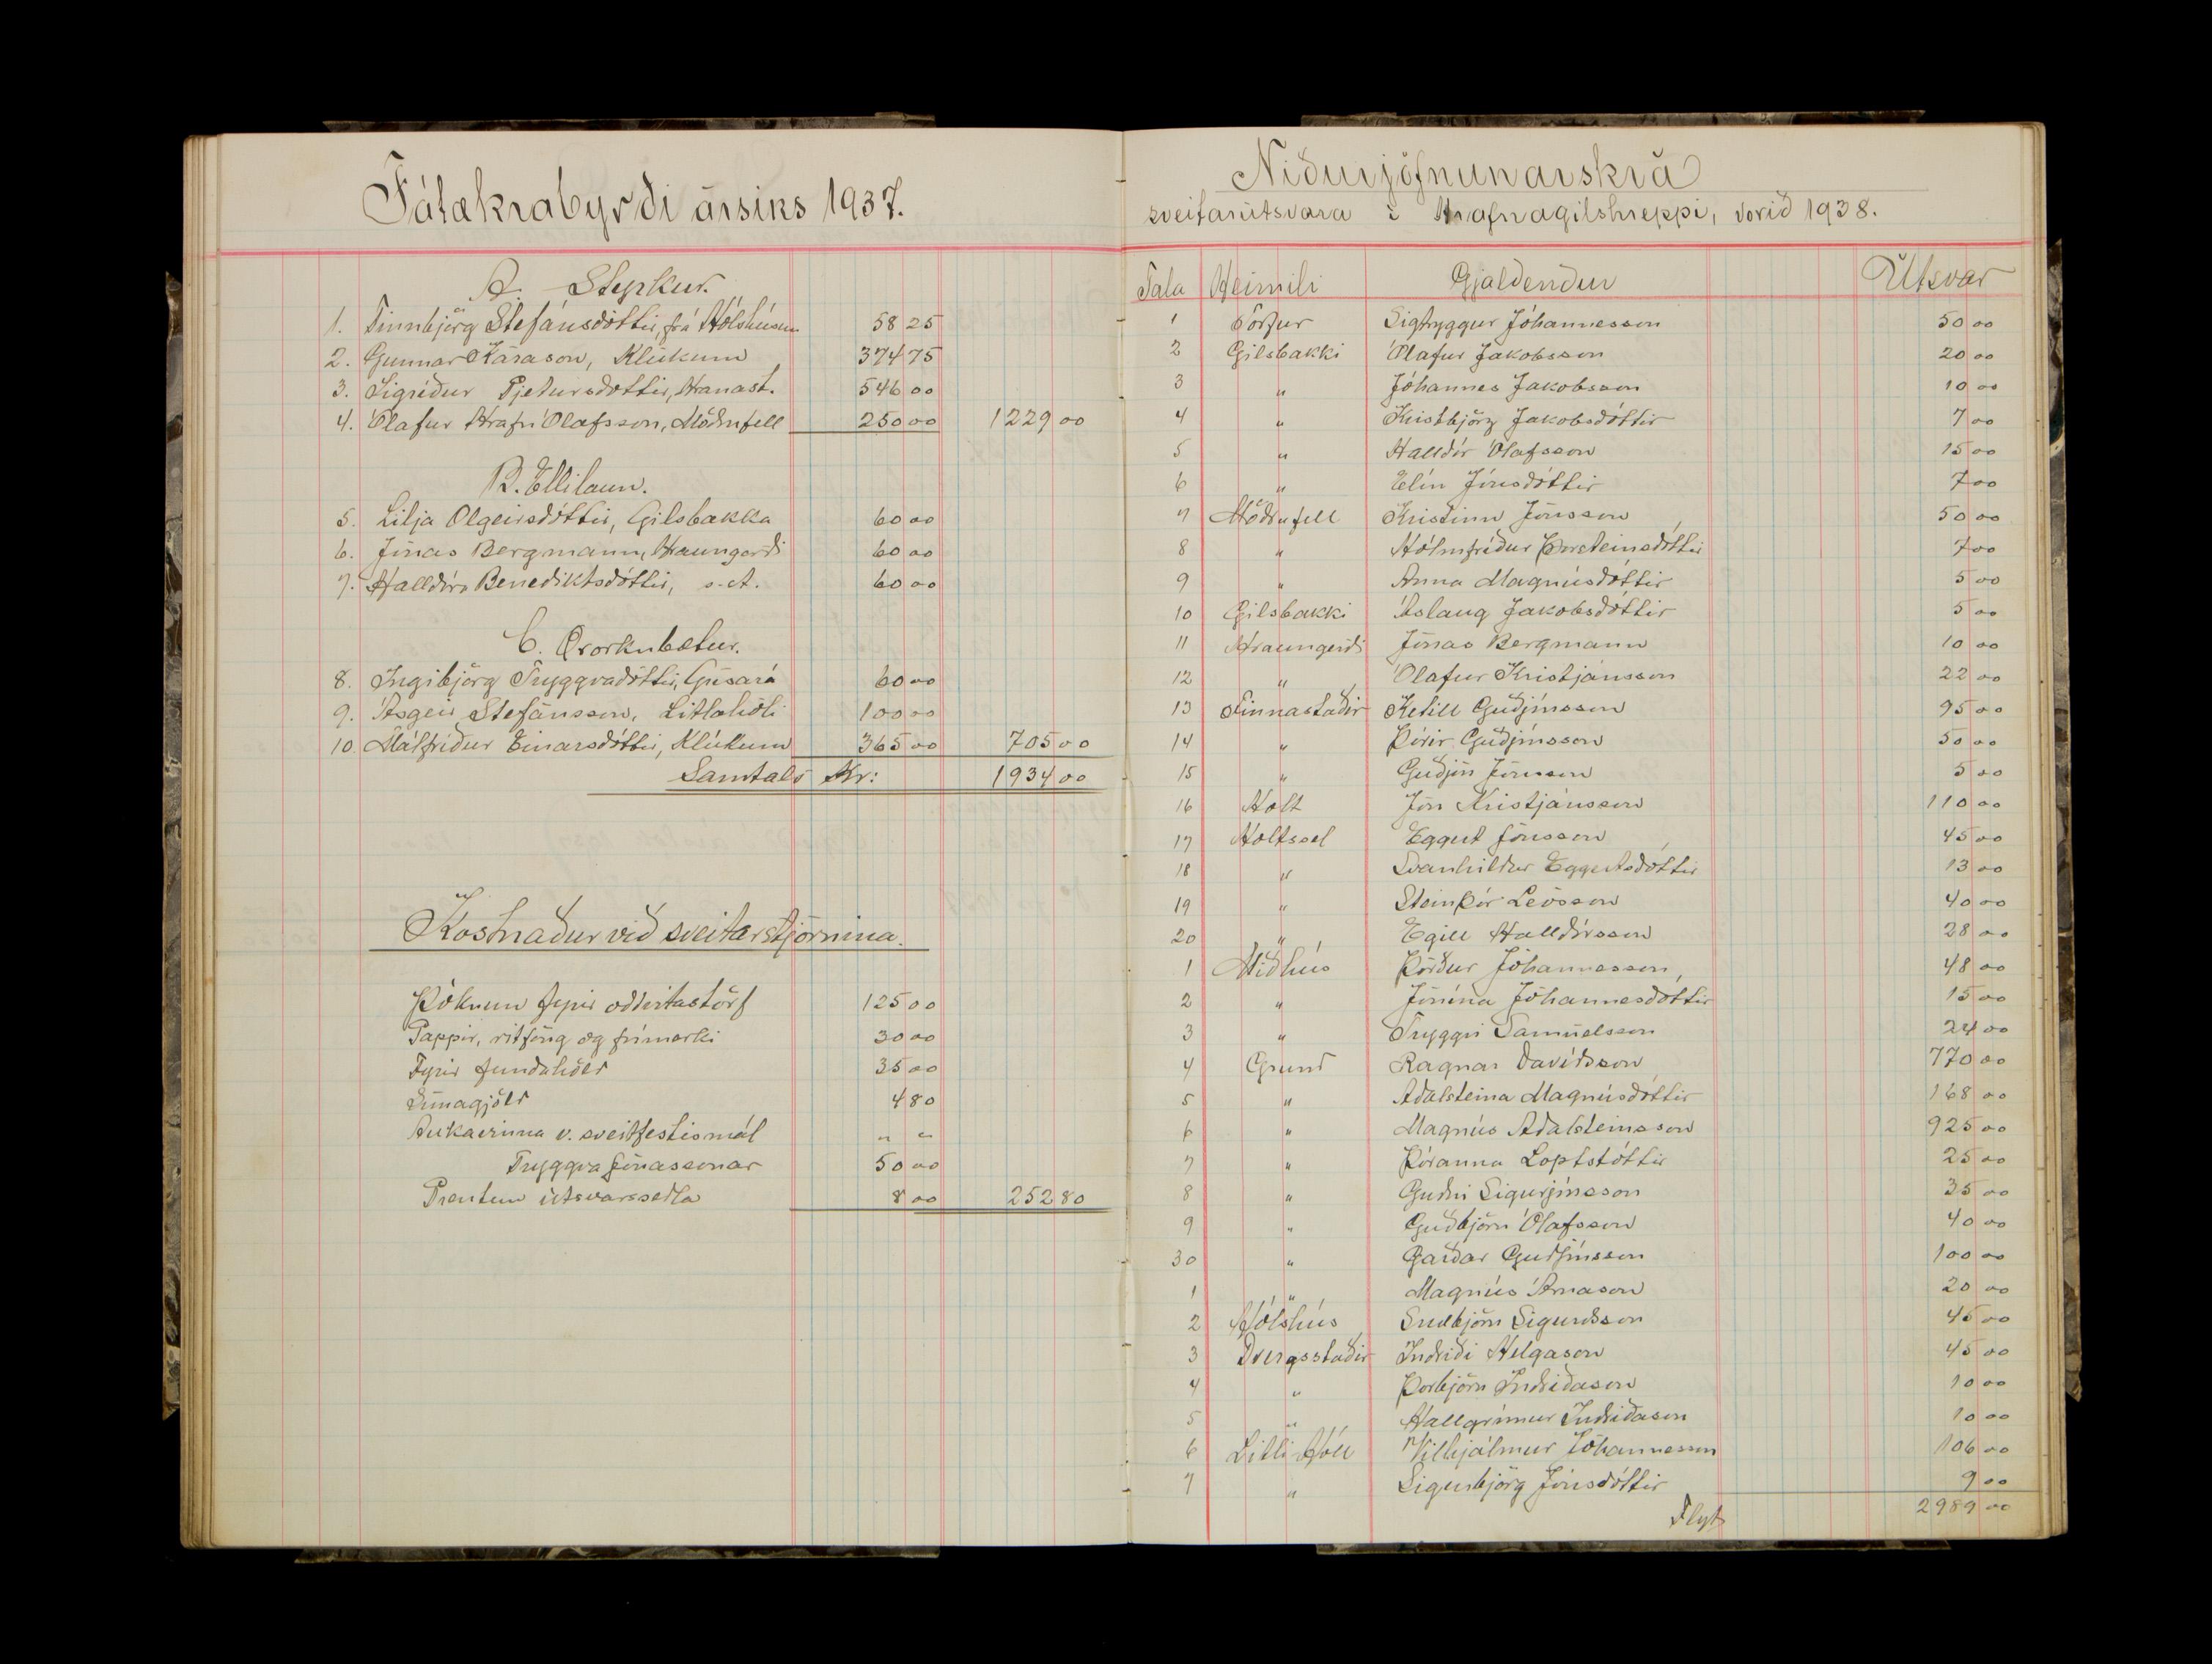 Fátækrabyrði ársins 1937.
A. Styrkur.
1. Finnbjörg Stefánsdóttir, frá Hólshúsum 58 25
2. Gunnar Kárason, Klúkum 374 75
3. Sigríður Pjetursdottir, Hranast. 546 00
4. Ólafur Hrafn Ólafsson, Möðrufell 250 00 1229 00
B. Ellilaun.
5. Lilja Olgeirsdóttir, Gilsbakka 60 00
6. Jónas Bergmann, Hraungerði 60 00
7. Halldóra Benediktsdóttir, s.st. 60 00
C. Örorkubætur.
8. Ingibjörg Tryggvadóttir, Gúsará 60 00
9. Ásgeir Stefánsson, Litlahóli 100 00
10. Málfríður Einarsdóttir, Klúkum 365 00 705 00
Samtals Kr: 1934 00
Kostnaður við sveitarstjórnina.
Þóknun fyrir oddvitastörf 125 00
Pappír, ritföng og frímerki 30 00
Fyrir fundahöld 35 00
Símagjöld 4 80
Aukavinna v. sveitfestismál " "
Tryggva Jónassonar 50 00
Prentun útsvarsseðla 8 00 252 80
Niðurjöfnunarskrá
sveitarútsvara í Hrafnagilshreppi, vorið 1938.
Tala Heimili Gjaldendur Útsvar
1 Torfur Sigtryggur Jóhannesson 50 00
2 Gilsbakki Ólafur Jakobsson 20 00
3 " Jóhannes Jakobsson 10 00
4 " Kristbjörg Jakobsdóttir 7 00
5 " Halldór Ólafsson 15 00
6 " Elín Jónsdóttir 7 00
7 Möðrufell Kristinn Jónsson 50 00
8 " Hólmfríður Þorsteinsdóttir 7 00
9 " Anna Magnúsdóttir 5 00
10 Gilsbakki Áslaug Jakobsdóttir 5 00
11 Hraungerði Jónas Bergmann 10 00
12 " Ólafur Kristjánsson 22 00
13 Finnastaðir Ketill Guðjónsson 95 00
14 " Þórir Guðjónsson 50 00
15 " Guðjón Jónsson 5 00
16 Holt Jón Kristjánsson 110 00
17 Holtssel Eggert Jónsson 45 00
18 " Svanhildur Eggertsdóttir 13 00
19 " Steinþór Leósson 40 00
20 " Egill Halldórsson 28 00
1 Miðhús Þórður Jóhannesson, 48 00
2 " Jónína Jóhannesdóttir 15 00
3 " Tryggvi Samúelsson 24 00
4 Grund Ragnar Davíðsson 770 00
5 " Aðalsteina Magnúsdóttir 168 00
6 " Magnús Aðalsteinsson 925 00
7 " Þóranna Loptstóttir 25 00
8 " Guðni Sigurjónsson 35 00
9 " Guðbjörn Ólafsson 40 00
30 " Garðar Guðjónsson 100 00
1 " Magnús Árnason 20 00
2 Hólshús Snæbjörn Sigurðsson 45 00
3 Dvergsstaðir Indriði Helgason 45 00
4 " Þorbjörn Indriðason 10 00
5 " Hallgrímur Indriðason 10 00
6 Litli Hóll Vilhjálmur Jóhannesson 106 00
7 " Sigurbjörg Jónsdóttir 9 00
Flyt 2989 00